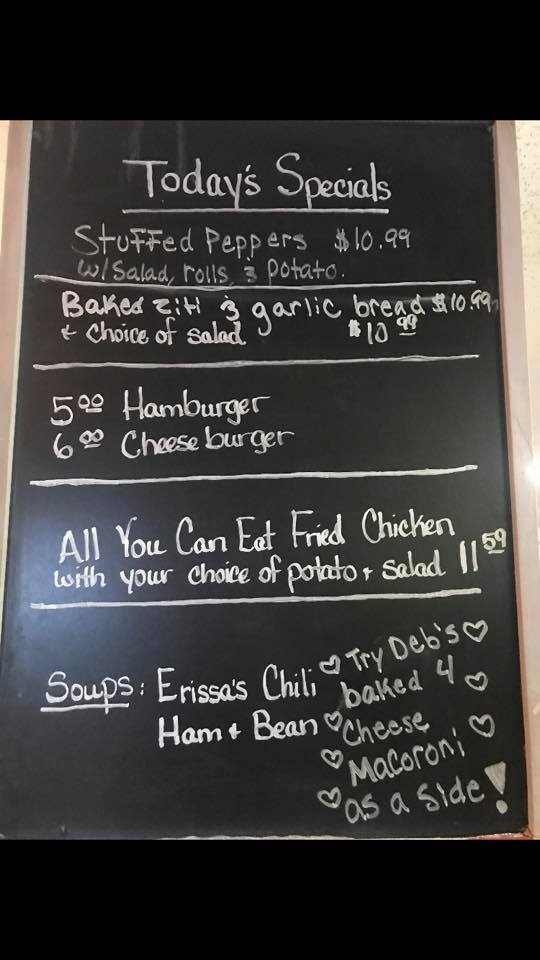 Today's Specials
Stuffed Peppers $10.99
w/salad, rolls, & potato.
Baked ziti & garlic bread $10.99
+ choice of salad $10 99
5 00 Hamburger
6 00 Cheeseburger
All You Can Eat Fried Chicken
with your choice of potato + salad 11 59
Soups: Erissa's Chili
Ham + Bean
♡ Try Deb's ♡
baked 4 ♡
♡ Cheese
♡ Macoroni ♡
♡ as a side!